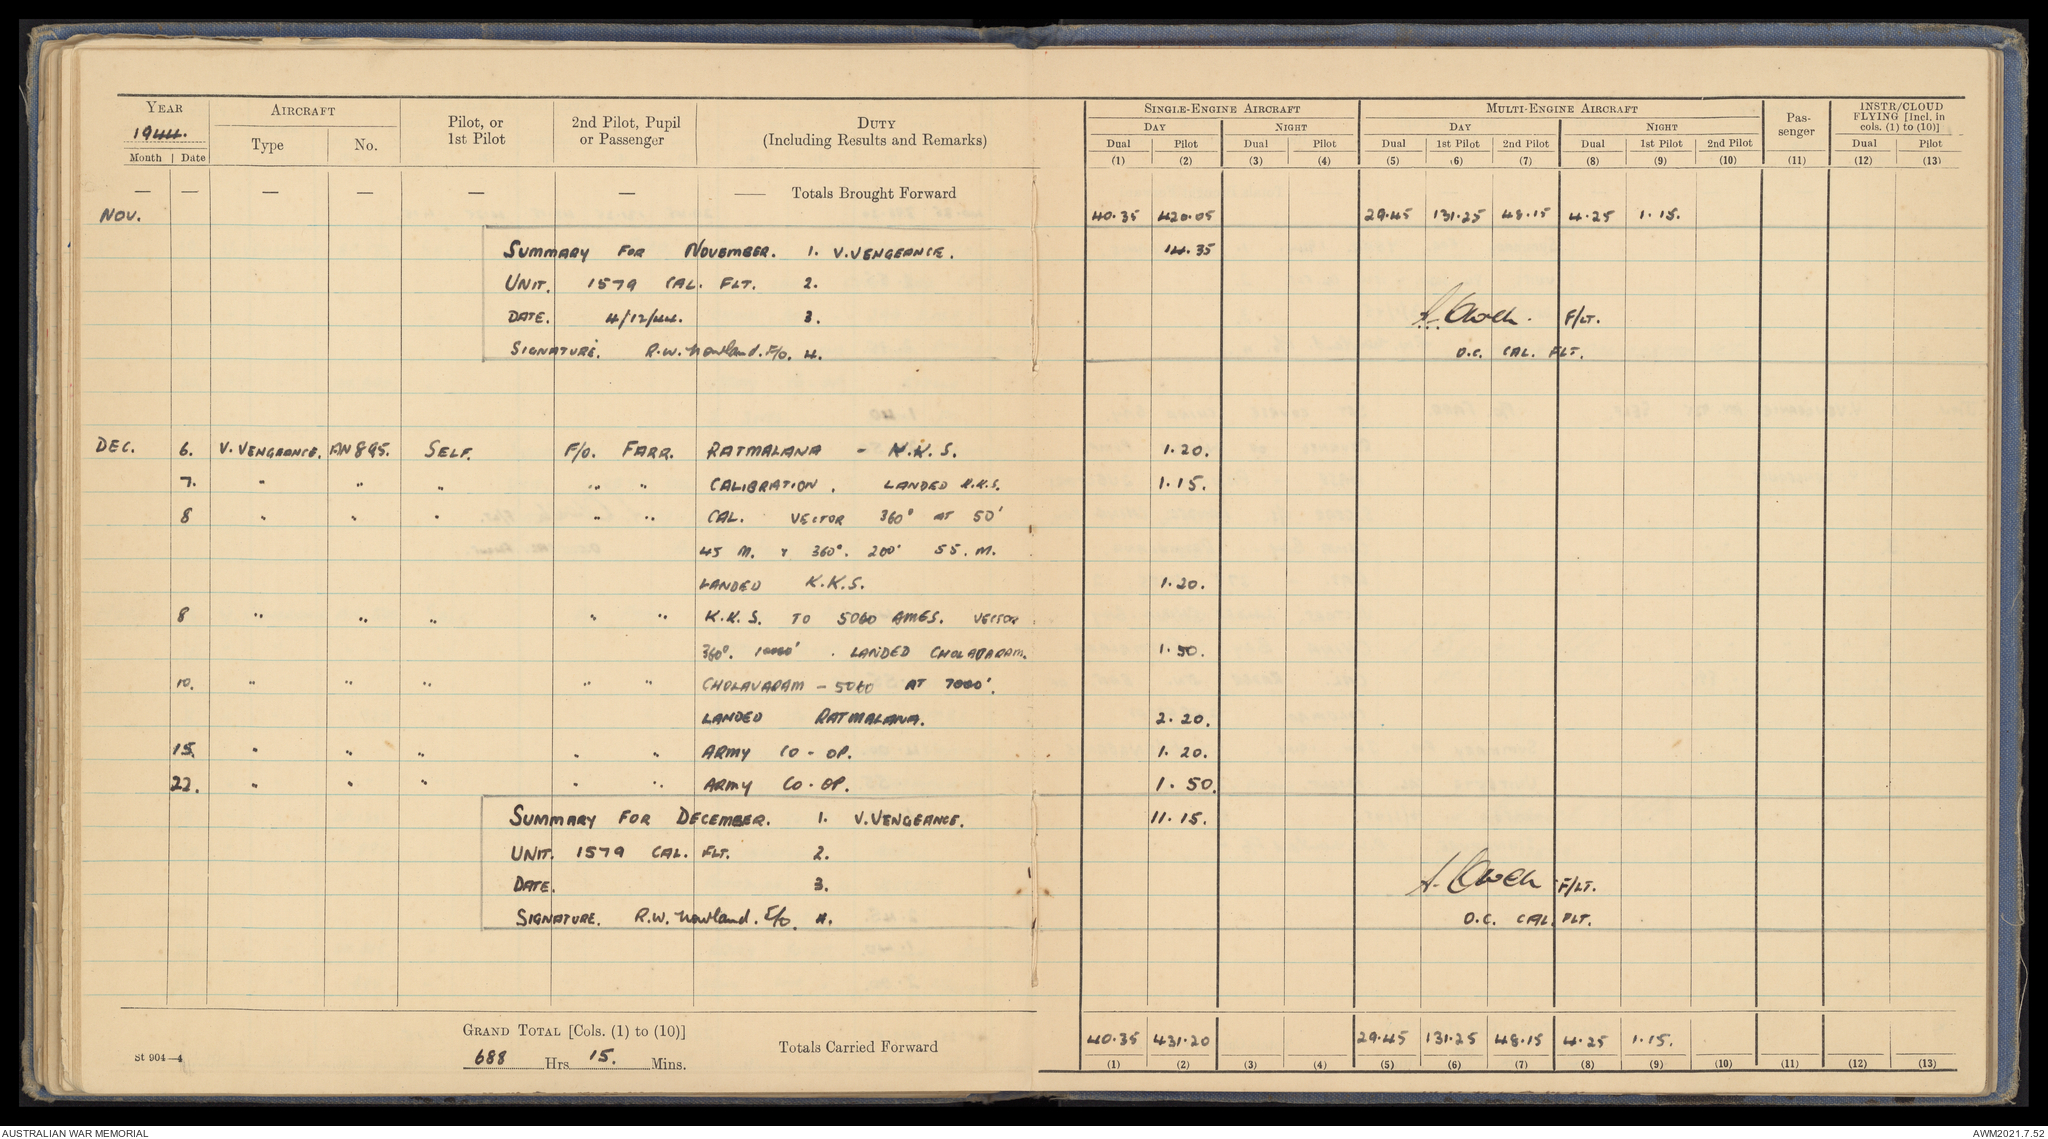 YEAR AIRCRAFT Pilot, or 1st Pilot 2nd Pilot, Pupil or Passenger DUTY (Including Results and Remarks) SINGLE-ENGINE AIRCRAFT MULTI-ENGINE AIRCRAFT Pas-senger INSTR/CLOUD FLYING [Incl. in cols. (1) to (10)]
1944. Type No. DAY NIGHT DAY NIGHT
Month Date Dual Pilot Dual Pilot Dual 1st Pilot 2nd Pilot Dual 1st Pilot 2nd Pilot Dual Pilot
(1) (2) (3) (4) (5) (6) (7) (8) (9) (10) (11) (12) (13)
— — — — — — — Totals Brought Forward
NOV. 40.35 420.05 29.45 131.25 48.15 4.25 1.15.
SUMMARY FOR NOVEMBER. 1. V.VENGEANCE. 14.35
UNIT. 1579 CAL. FLT. 2.
DATE. 4/12/44. 3. F/LT.
SIGNATURE. R.W. Nowland. F/O. 4. O.C. CAL. FLT.
DEC. 6. V.VENGEANCE. AN895. SELF. F/O. FARR. RATMALANA - K.K.S. 1.20.
7. " " " " " CALIBRATION. LANDED K.K.S. 1.15.
8 " " " " " CAL. VECTOR 360° AT 50'
45 M. & 360°. 200' 55. M.
LANDED K.K.S. 1.20.
8 " " " " " K.K.S. TO 5060 AMES. VECTOR
360°. 10000' . LANDED CHOLAVARAM. 1.50.
10. " " " " " CHOLAVARAM - 5060 AT 7000'.
LANDED RATMALANA. 2.20.
15. " " " " " ARMY CO-OP. 1.20.
22. " " " " " ARMY CO-OP. 1.50.
SUMMARY FOR DECEMBER. 1. V.VENGEANCE. 11.15.
UNIT. 1579 CAL. FLT. 2.
DATE. 3. F/LT.
SIGNATURE. R.W. Nowland. F/O. 4. O.C. CAL. FLT.
GRAND TOTAL [Cols. (1) to (10)]
688 Hrs 15. Mins. Totals Carried Forward 40.35 431.20 29.45 131.25 48.15 4.25 1.15.
St 904—4 (1) (2) (3) (4) (5) (6) (7) (8) (9) (10) (11) (12) (13)
AUSTRALIAN WAR MEMORIAL AWM2021.7.52